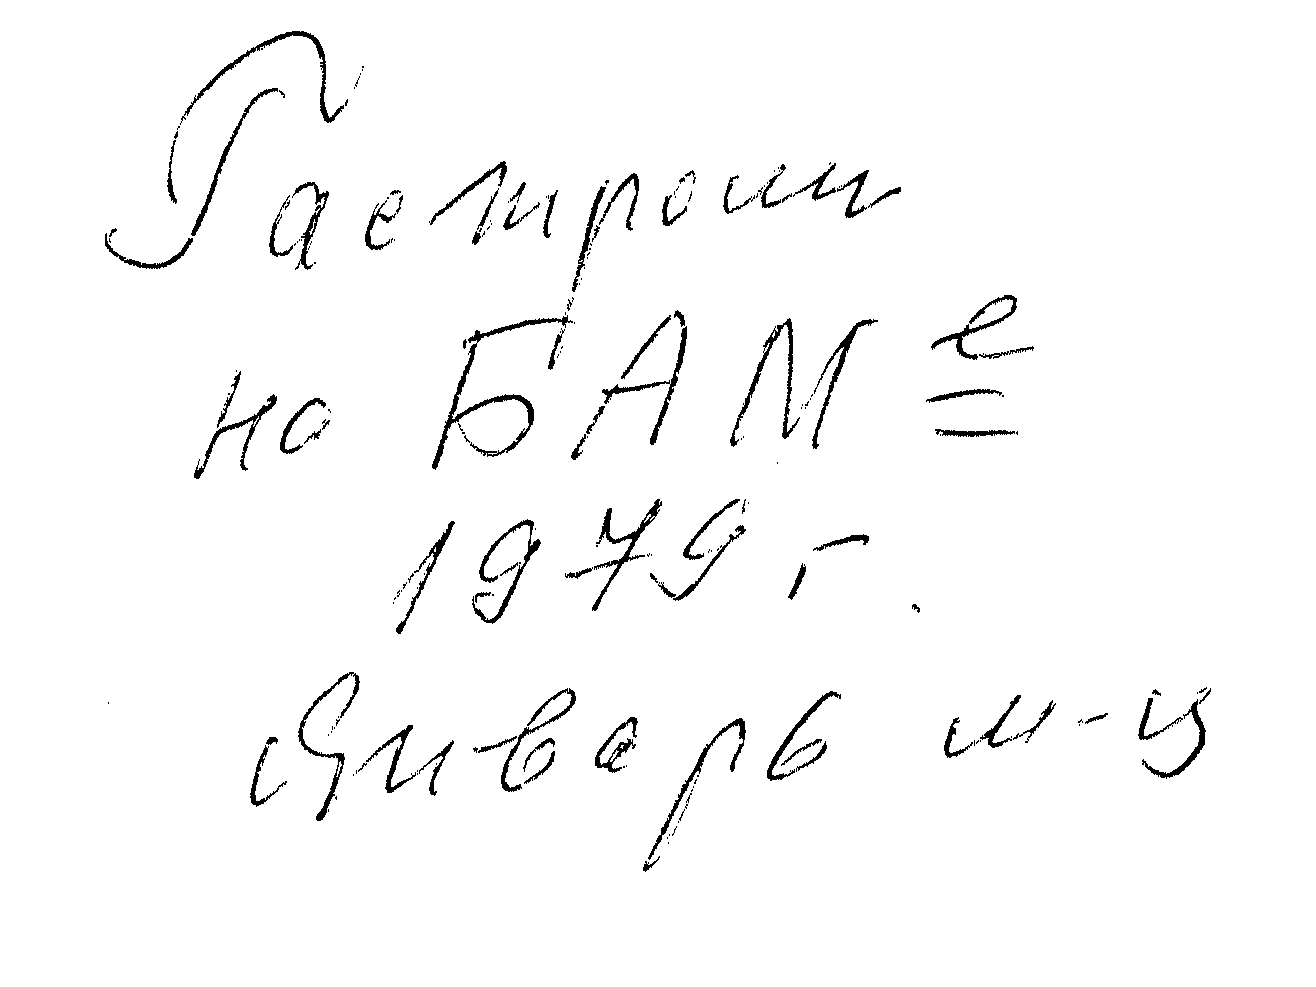 Гастроли
на БАМе
1979 г.
Январь м-ц